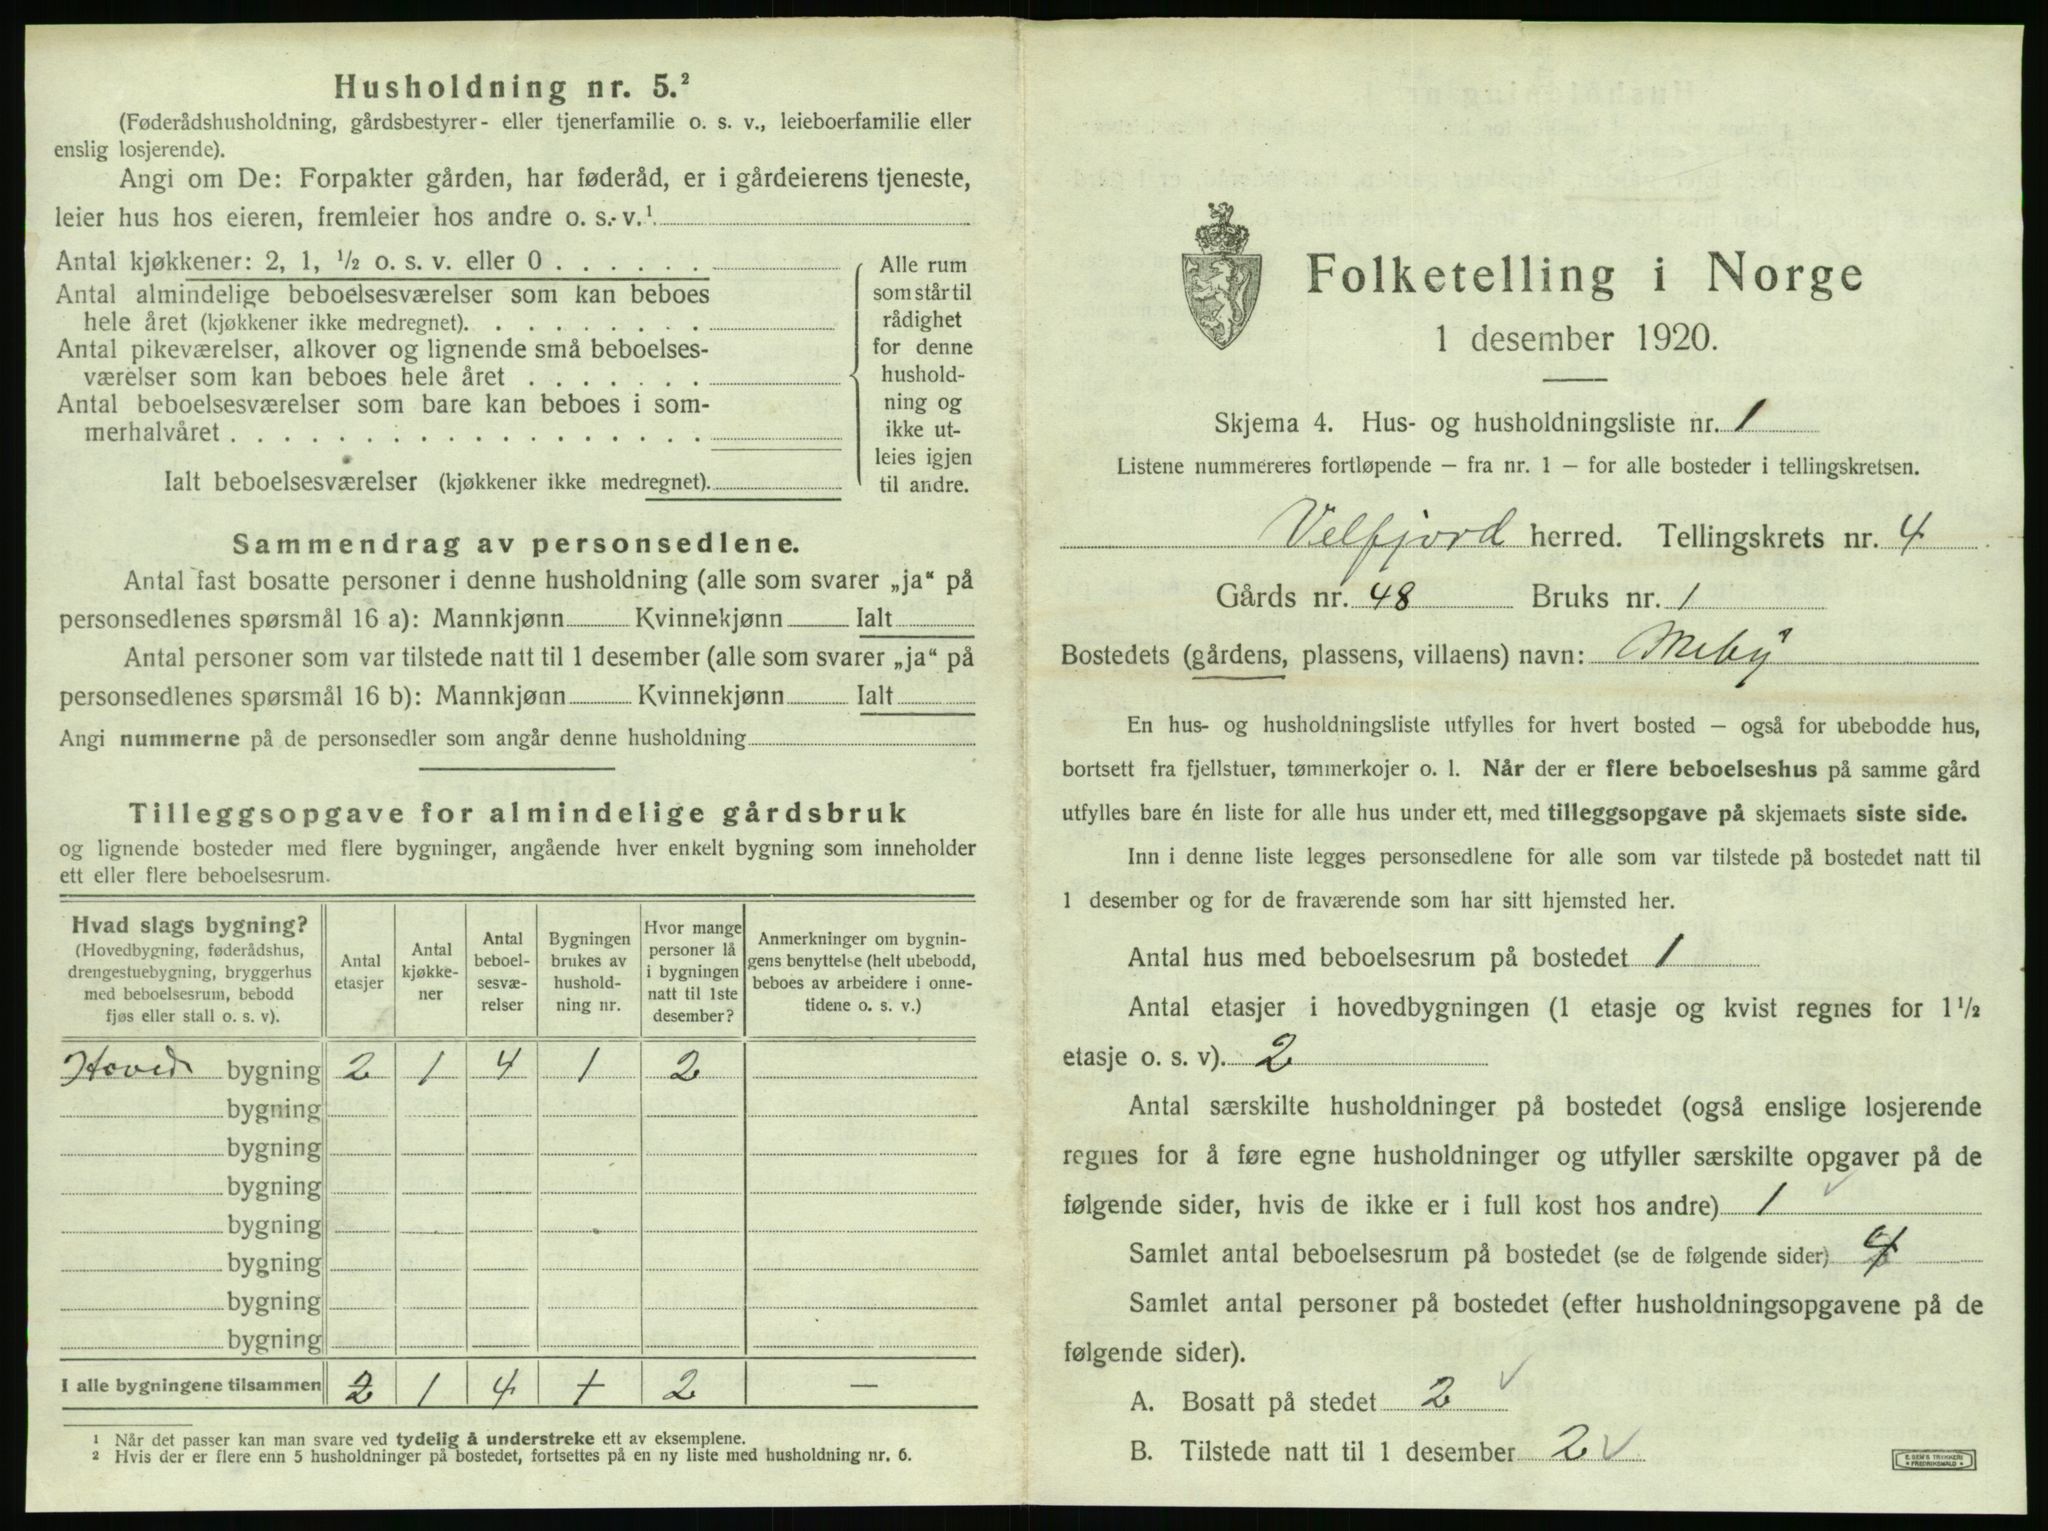 Husholdning nr. 5.²
(Føderådshusholdning, gårdsbestyrer- eller tjenerfamilie o. s. v., leieboerfamilie eller
enslig losjerende).
Angi om De: Forpakter gården, har føderåd, er i gårdeierens tjeneste,
leier hus hos eieren, fremleier hos andre o. s. v.¹
Antal kjøkkener: 2, 1, ½ o. s. v. eller 0 . . . . . .
Antal almindelige beboelsesværelser som kan beboes
hele året (kjøkkener ikke medregnet). . . . . . . . .
Antal pikeværelser, alkover og lignende små beboelses-
værelser som kan beboes hele året . . . . . . .
Antal beboelsesværelser som bare kan beboes i som-
merhalvåret . . . . . . . . . . . . . . . . . .
Ialt beboelsesværelser (kjøkkener ikke medregnet).
Alle rum
som står til
rådighet
for denne
hushold-
ning og
ikke ut-
leies igjen
til andre.
Sammendrag av personsedlene.
Antal fast bosatte personer i denne husholdning (alle som svarer „ja“ på
personsedlenes spørsmål 16 a): Mannkjønn Kvinnekjønn Ialt
Antal personer som var tilstede natt til 1 desember (alle som svarer „ja“ på
personsedlenes spørsmål 16 b): Mannkjønn Kvinnekjønn Ialt
Angi nummerne på de personsedler som angår denne husholdning
Tilleggsopgave for almindelige gårdsbruk
og lignende bosteder med flere bygninger, angående hver enkelt bygning som inneholder
ett eller flere beboelsesrum.
Hvad slags bygning?
(Hovedbygning, føderådshus,
drengestuebygning, bryggerhus
med beboelsesrum, bebodd
fjøs eller stall o. s. v).
Antal
etasjer
Antal
kjøkke-
ner
Antal
beboel-
sesvæ-
relser
Bygningen
brukes av
hushold-
ning nr.
Hvor mange
personer lå
i bygningen
natt til 1ste
desember?
Anmerkninger om bygnin-
gens benyttelse (helt ubebodd,
beboes av arbeidere i onne-
tidene o. s. v.)
Hoved bygning 2 1 4 1 2
bygning
bygning
bygning
bygning
bygning
bygning
bygning
I alle bygningene tilsammen 2 1 4 + 2 —
¹ Når det passer kan man svare ved tydelig å understreke ett av eksemplene.
² Hvis der er flere enn 5 husholdninger på bostedet, fortsettes på en ny liste med husholdning nr. 6.
Folketelling i Norge
1 desember 1920.
Skjema 4. Hus- og husholdningsliste nr. 1
Listene nummereres fortløpende – fra nr. 1 – for alle bosteder i tellingskretsen.
Velfjord herred. Tellingskrets nr. 4
Gårds nr. 48 Bruks nr. 1
Bostedets (gårdens, plassens, villaens) navn: Meby
En hus- og husholdningsliste utfylles for hvert bosted – også for ubebodde hus,
bortsett fra fjellstuer, tømmerkojer o. l. Når der er flere beboelseshus på samme gård
utfylles bare én liste for alle hus under ett, med tilleggsopgave på skjemaets siste side.
Inn i denne liste legges personsedlene for alle som var tilstede på bostedet natt til
1 desember og for de fraværende som har sitt hjemsted her.
Antal hus med beboelsesrum på bostedet 1
Antal etasjer i hovedbygningen (1 etasje og kvist regnes for 1½
etasje o. s. v). 2
Antal særskilte husholdninger på bostedet (også enslige losjerende
regnes for å føre egne husholdninger og utfyller særskilte opgaver på de
følgende sider, hvis de ikke er i full kost hos andre) 1
Samlet antal beboelsesrum på bostedet (se de følgende sider) 4
Samlet antal personer på bostedet (efter husholdningsopgavene på de
følgende sider).
A. Bosatt på stedet 2
B. Tilstede natt til 1 desember 2
E. SEM'S TRYKKERI
FREDRIKSHALD